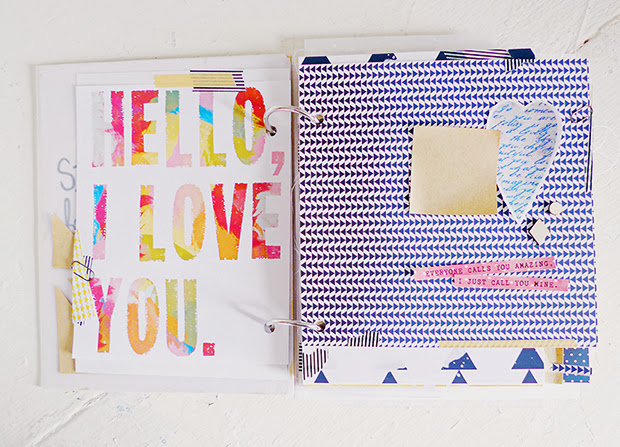 HELLO,
I LOVE
YOU.
EVERYONE CALLS YOU AMAZING.
I JUST CALL YOU MINE.